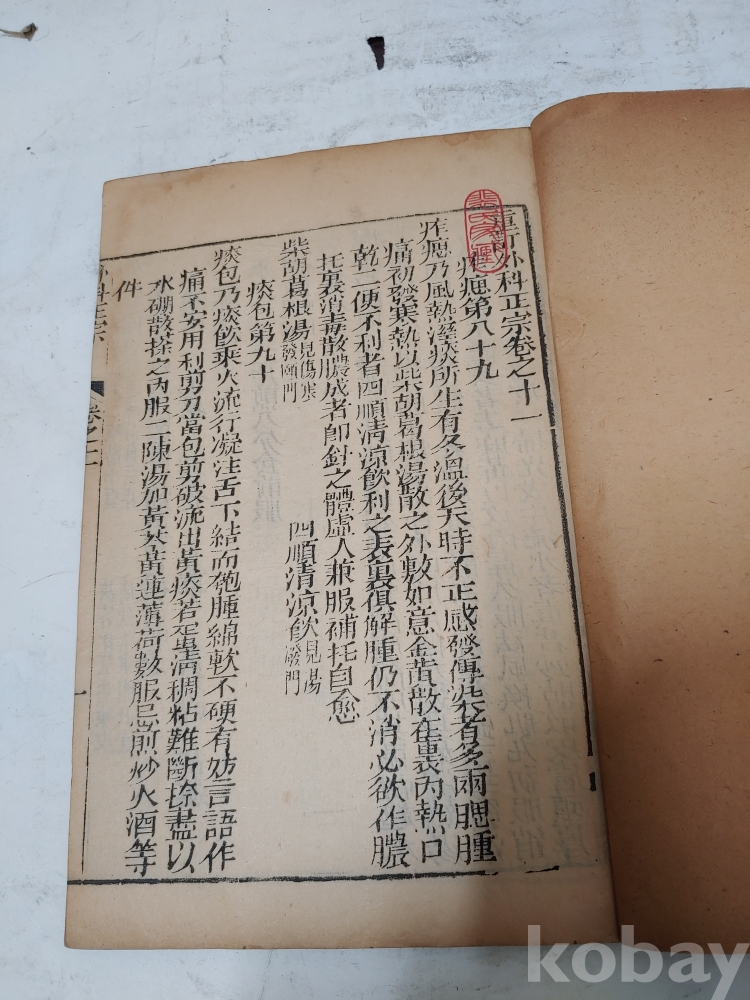 重訂外科正宗卷之十一
痄瘧第八十九
痄瘧乃風熱溼痰所生有冬溫後天時不正感發傳染者多兩腮腫
痛初發寒熱以柴胡葛根湯散之外敷如意金黃散在裏內熱口
乾二便不利者四順清涼飲利之表裏俱解腫仍不消必欲作膿
托裏消毒散膿成者即針之體虛人兼服補托自愈
柴胡葛根湯見傷寒發頤門
四順清涼飲見湯潑門
痰包第九十
痰包乃痰飲乘火流行凝注舌下結而匏腫綿軟不硬有妨言語作
痛不安用利剪刀當包剪破流出黃痰若蛋清稠粘難斷捺盡以
水硼散搽之內服二陳湯加黃芩黃連薄荷數服忌煎炒火酒等
件
外科正宗
卷之十一
一
kobay